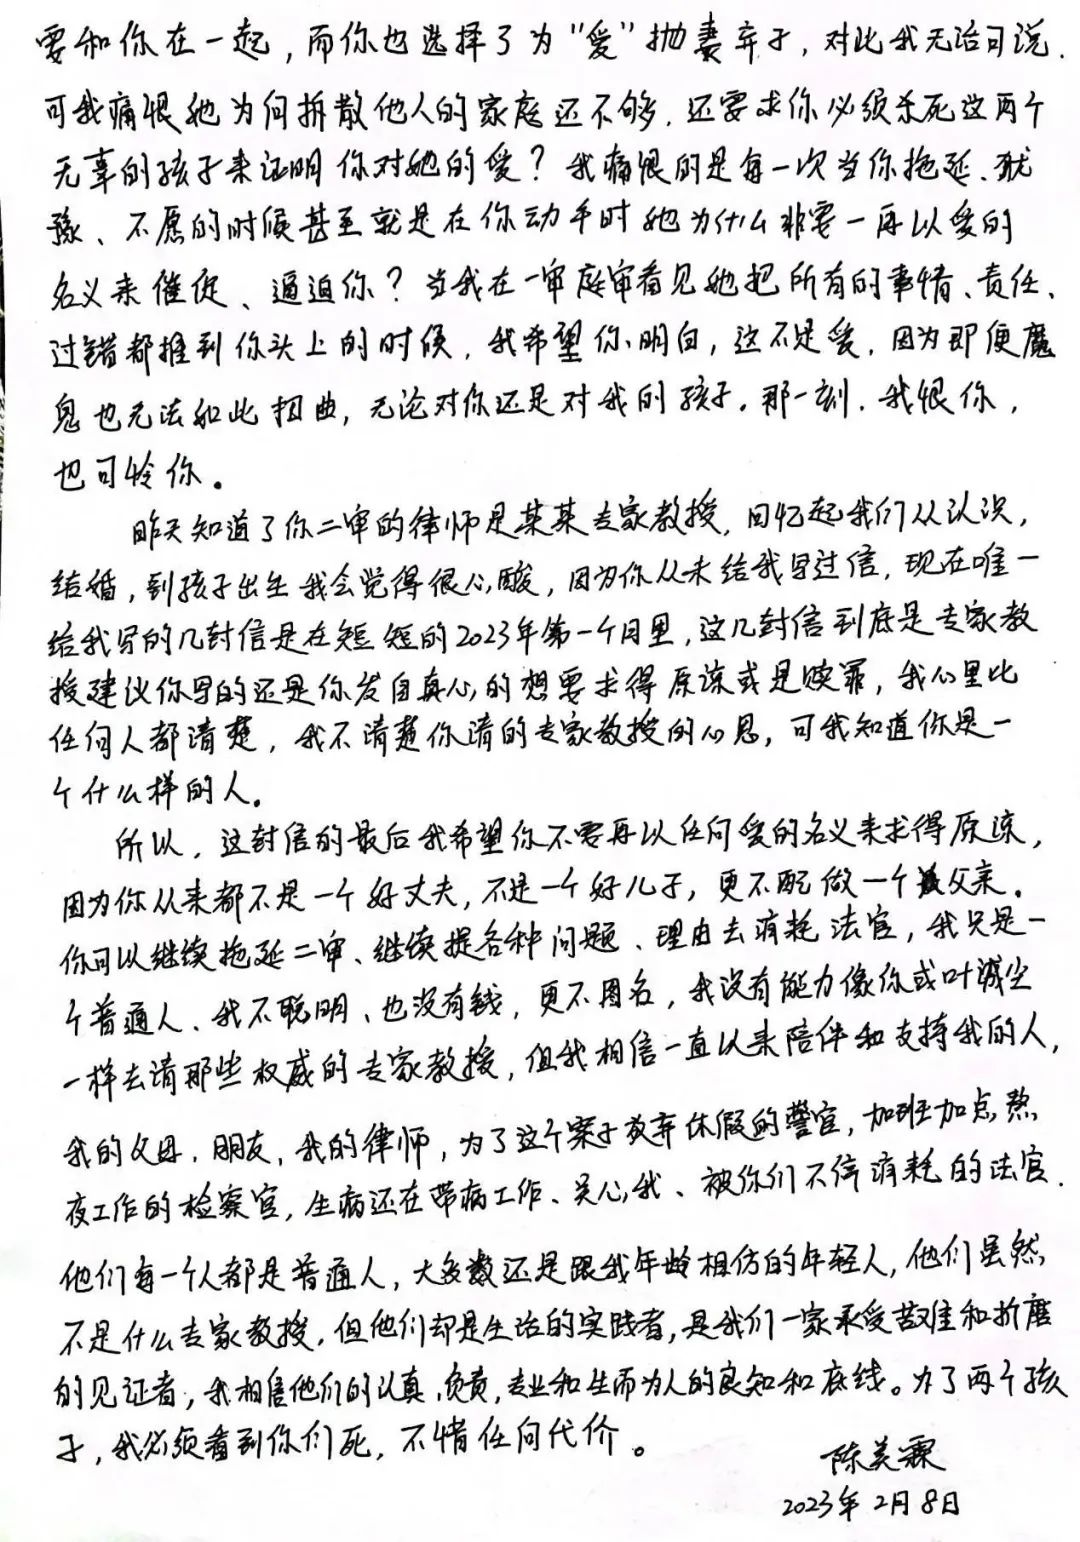 要和你在一起，而你也选择了为“爱”抛妻弃子，对此我无话可说.
可我痛恨她为何拆散他人的家庭还不够．还要求你必须杀死这两个
无辜的孩子来证明你对她的爱？我痛恨的是每一次当你拖延、犹
豫、不愿的时候甚至就是在你动手时她为什么非要一再以爱的
名义来催促、逼迫你？当我在一审庭审看见她把所有的事情、责任、
过错都推到你头上的时候，我希望你明白，这不是爱．因为即便魔
鬼也无法如此扭曲，无论对你还是对我的孩子。那一刻．我恨你，
也可怜你。
昨天知道了你二审的律师是某某专家教授，回忆起我们从认识，
结婚，到孩子出生我会觉得很心酸，因为你从未给我写过信，现在唯一
给我写的几封信是在短短的2023年第一个月里，这几封信到底是专家教
授建议你写的还是你发自真心的想要求得原谅或是赎罪，我心里比
任何人都清楚，我不清楚你请的专家教授的心思，可我知道你是一
个什么样的人。
所以，这封信的最后我希望你不要再以任何爱的名义来求得原谅，
因为你从来都不是一个好丈夫，不是一个好儿子，更不配做一个父亲。
你可以继续拖延二审、继续提各种问题、理由去消耗法官，我只是一
个普通人、我不聪明、也没有钱，更不图名，我没有能力像你或叶诚尘
一样去请那些权威的专家教授，但我相信一直以来陪伴和支持我的人，
我的父母．朋友，我的律师，为了这个案子放弃休假的警官，加班加点熬
夜工作的检察官，生病还在带病工作、关心我、被你们不停消耗的法官．
他们每一个人都是普通人，大多数还是跟我年龄相仿的年轻人，他们虽然
不是什么专家教授，但他们却是生活的实践者，是我们一家承受苦难和折磨
的见证者，我相信他们的认真，负责，专业和生而为人的良知和底线。为了两个孩
子，我必须看到你们死，不惜任何代价。
陈美霖
2023年2月8日